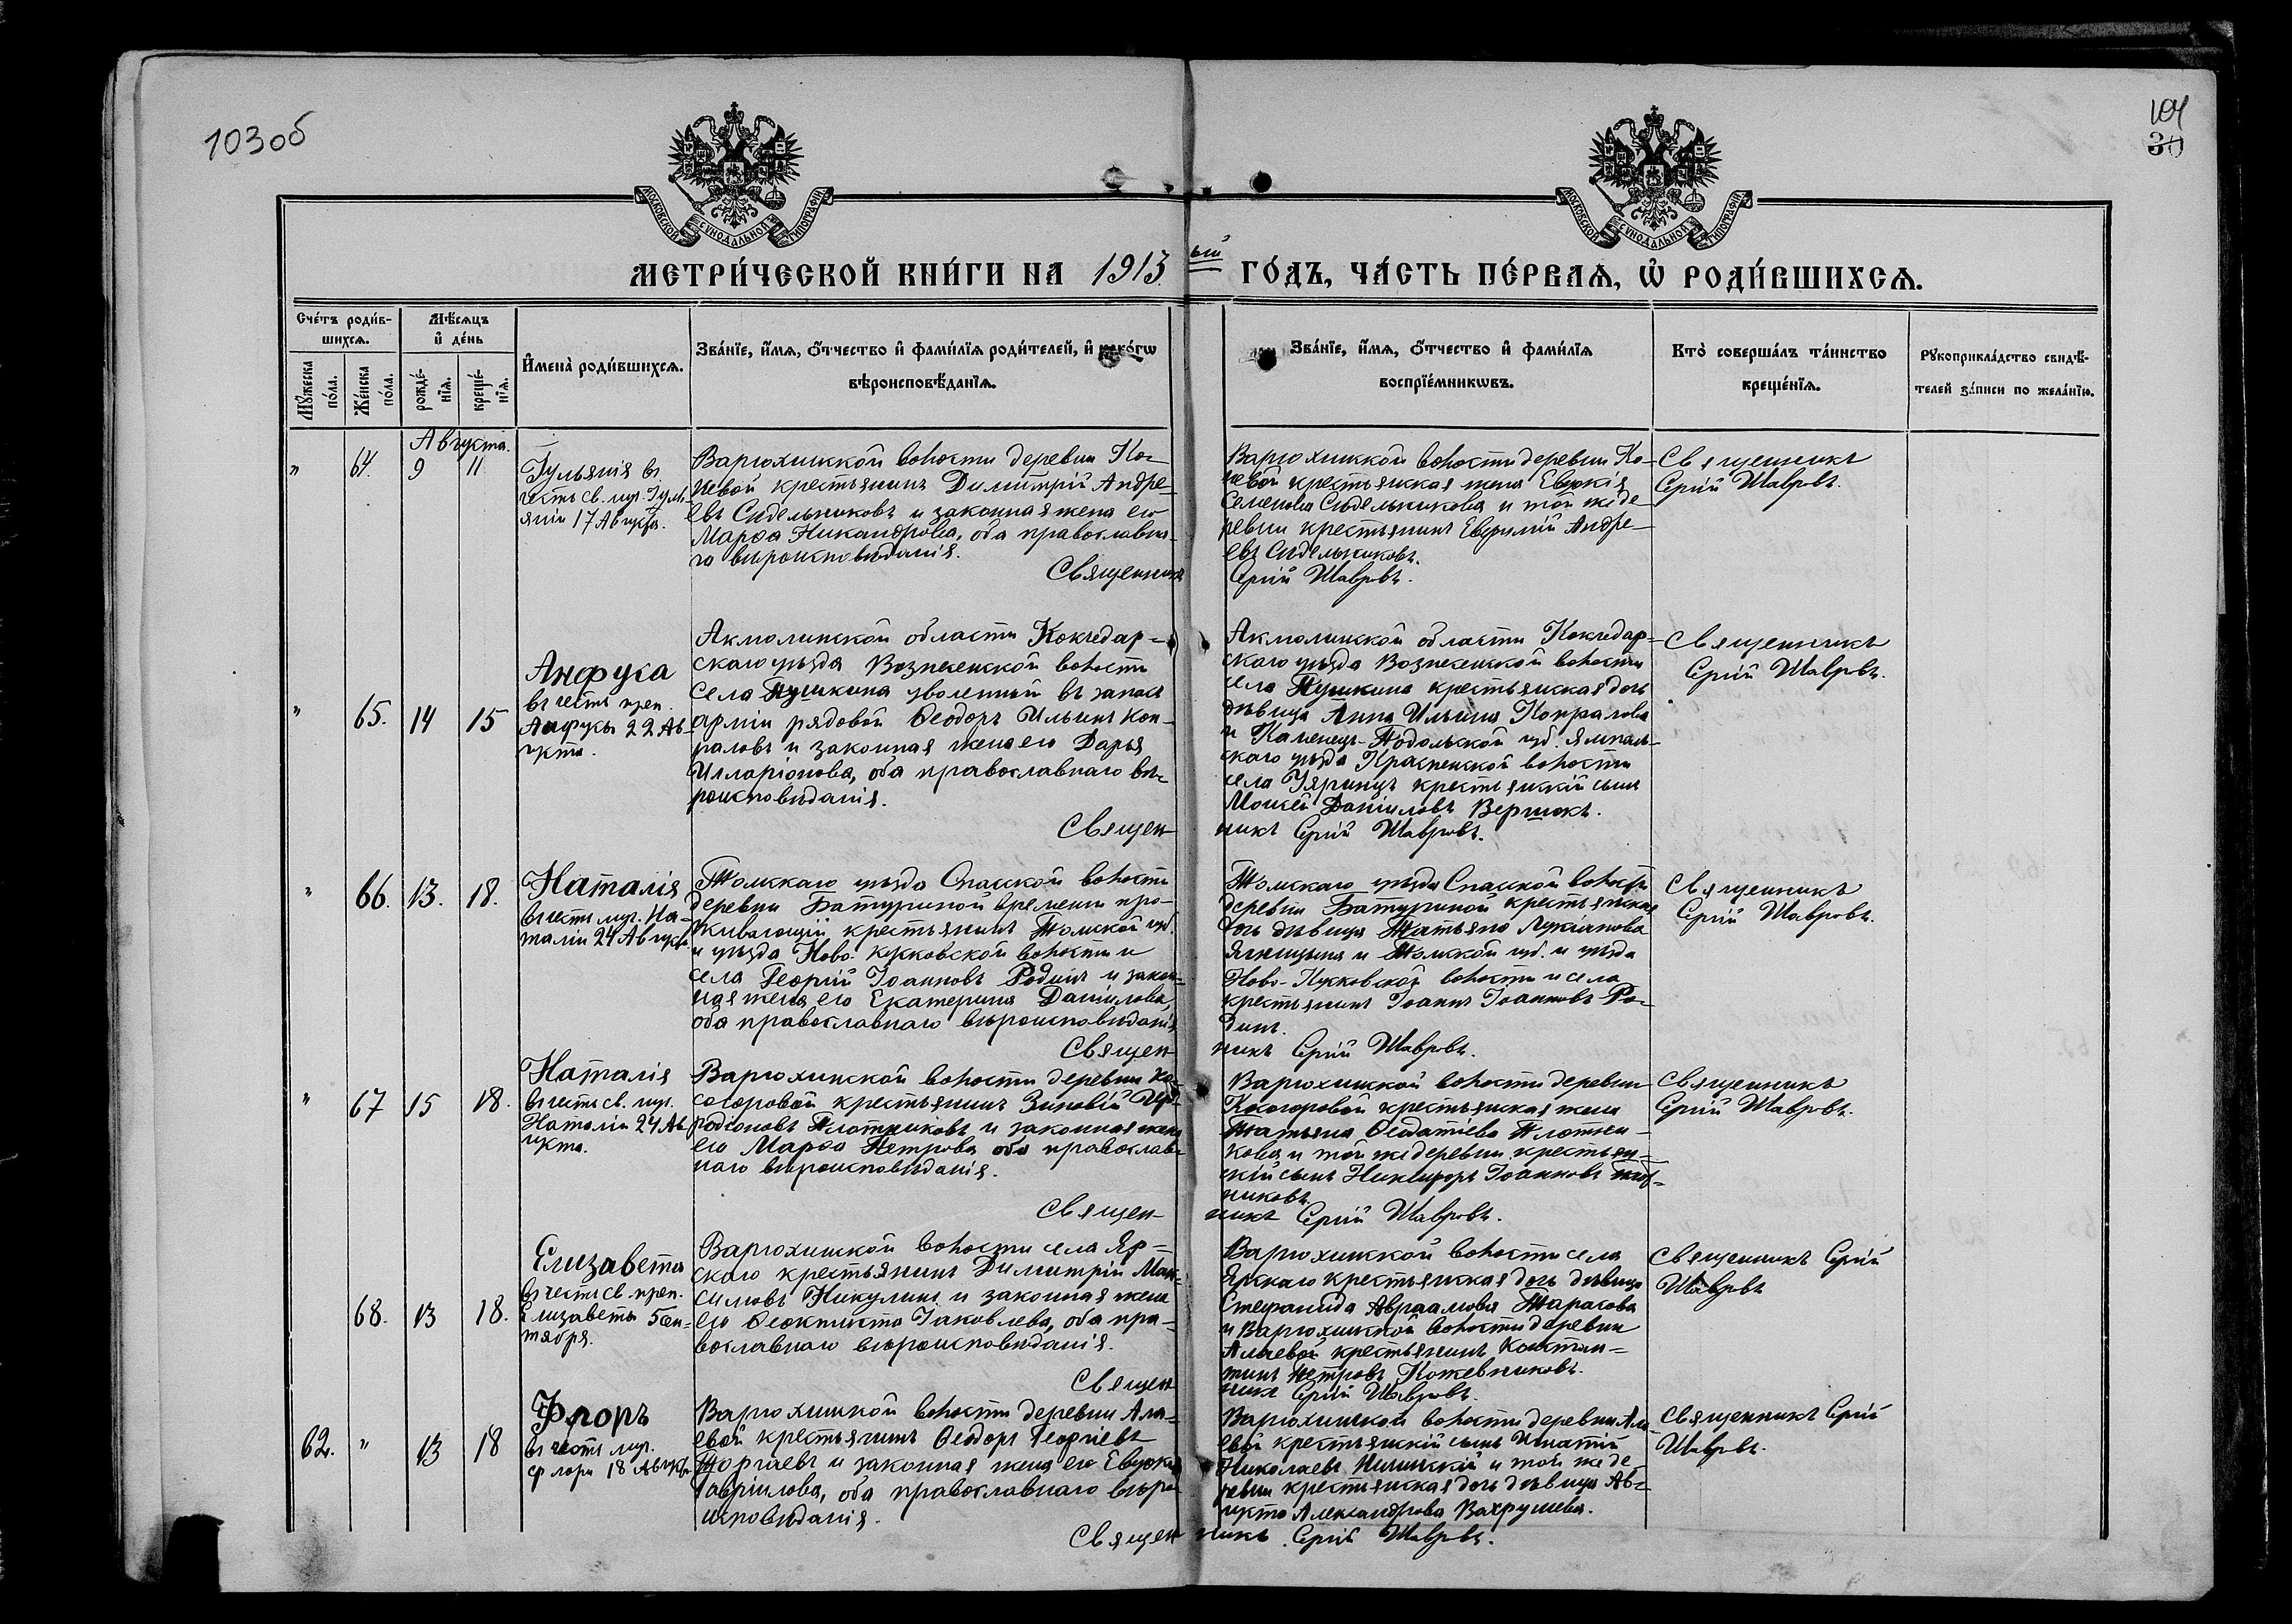 103об
104
30
МОСКОВСКОЙ СѴНОДАЛЬНОЙ ТИПОГРАФІИ
МОСКОВСКОЙ СѴНОДАЛЬНОЙ ТИПОГРАФІИ
МЕТРИ́ЧЕСКОЙ КНИ́ГИ НА 1913ый ГО́ДЪ, ЧА́СТЬ ПЕ́РВАѦ, Ѡ҆ РОДИ́ВШИХСѦ.
Сче́тъ роди́в-
шихсѧ.
Мꙋ́жеска
по́ла.
Же́нска
по́ла.
Мѣ́сѧцъ
и҆ де́нь
рожде́-
нїѧ.
креще́-
нїѧ.
И҆мена̀ роди́вшихсѧ.
Зва́нїе, и҆́мѧ, ѻ҆́тчество и҆ фами́лїѧ роди́телей, и҆ како́гѡ
вѣроисповѣ́данїѧ.
Зва́нїе, и҆́мѧ, ѻ҆́тчество и҆ фами́лїѧ
воспрїе́мникѡвъ.
Кто̀ соверша́лъ та́инство
креще́нїѧ.
Рꙋкоприкла́дство свидѣ́-
телей за́писи по жела́нїю.
Августа.
" 64. 9 11
Іульянія въ
честь св. муч. Іуль-
яніи 17 Августа.
Варюхинской волости деревни Ко-
крестьянинъ Димитрій Андре-
евъ Сидельниковъ и законная жена его
Марѳа Никандрова, оба православна-
го вѣроисповѣданія.
Священникъ
Варюхинской волости деревни Ко-
крестьянская жена Евдокія
Семенова Сидельникова и той же де-
ревни крестьянинъ Евфимій Андре-
евъ Сидельниковъ.
Сергій Шавровъ.
Священникъ
Сергій Шавровъ.
" 65. 14 15
Анфуса
въ честь преп.
Анфусы 22 Ав-
густа.
Акмолинской области Кокчедар-
скаго уѣзда Вознесенской волости
села Пушкина уволенный въ запасъ
арміи рядовой Ѳеодоръ Ильинъ Кон-
раловъ и законная жена его Дарья
Илларіонова, оба православнаго вѣ-
роисповѣданія.
Священ-
Акмолинской области Кокчедар-
скаго уѣзда Вознесенской волости
села Пушкина крестьянская дочь
дѣвица Анна Ильина Конралова
и Каменецъ-Подольской губ. Ямполь-
скаго уѣзда Краснянской волости
села крестьянскій сынъ
Моисей Даніиловъ Вершокъ.
никъ Сергій Шавровъ.
Священникъ
Сергій Шавровъ.
" 66. 13. 18.
Наталія
въ честь муч. На-
таліи 24 Августа
Томскаго уѣзда Спасской волости
деревни Батуриной временно про-
живающій крестьянинъ Томской губ.
и уѣзда Ново-Кусковской волости и
села Георгій Іоанновъ Родинъ и закон-
ная жена его Екатерина Даніилова,
оба православнаго вѣроисповѣданія
Священ-
Томскаго уѣзда Спасской волости
деревни Батуриной крестьянская
дочь дѣвица Татьяна Лукіанова
и Томской губ. и уѣзда
Ново-Кусковской волости и села
крестьянинъ Іоаннъ Іоанновъ Ро-
динъ.
никъ Сергій Шавровъ.
Священникъ
Сергій Шавровъ.
" 67 15 18.
Наталія
въ честь св. муч.
Наталіи 24 Ав-
густа.
Варюхинской волости деревни Ко-
согоровой крестьянинъ Зиновій
Плотниковъ и законная жена
его Марѳа Петрова, оба православ-
наго вѣроисповѣданія.
Священ-
Варюхинской волости деревни
Косогоровой крестьянская жена
Татьяна Ѳеодотіева Плотни-
кова и той же деревни крестьян-
скій сынъ Никифоръ Іоанновъ Плот-
никовъ.
никъ Сергій Шавровъ.
Священникъ
Сергій Шавровъ.
68. 13 18.
Елизавета
въ честь св. преп.
Елизаветы 5 Сен-
тября.
Варюхинской волости села Яр-
скаго крестьянинъ Димитрій Мак-
симовъ Никулинъ и законная жена
его Ѳеоктиста Іаковлева, оба пра-
вославнаго вѣроисповѣданія.
Священ
Варюхинской волости села
Ярскаго крестьянская дочь дѣвица
Стефанида Авраамова Тарасова
и Варюхинской волости деревни
Алаевой крестьянинъ Констан-
тинъ Петровъ Кожевниковъ.
никъ Сергій Шавровъ.
Священникъ Сергій
Шавровъ
62. " 13 18
Флоръ
въ честь муч.
Флора 18 Августа
Варюхинской волости деревни Ала-
евой крестьянинъ Ѳеодоръ Георгіевъ
и законная жена его Евдокія
Гавріилова, оба православнаго вѣро-
исповѣданія.
Священ
Варюхинской волости деревни Ала-
евой крестьянскій сынъ Игнатій
Николаевъ и той же де-
ревни крестьянская дочь дѣвица Ав-
густа Александрова Вахрушева.
никъ Сергій Шавровъ.
Священникъ Сергій
Шавровъ.